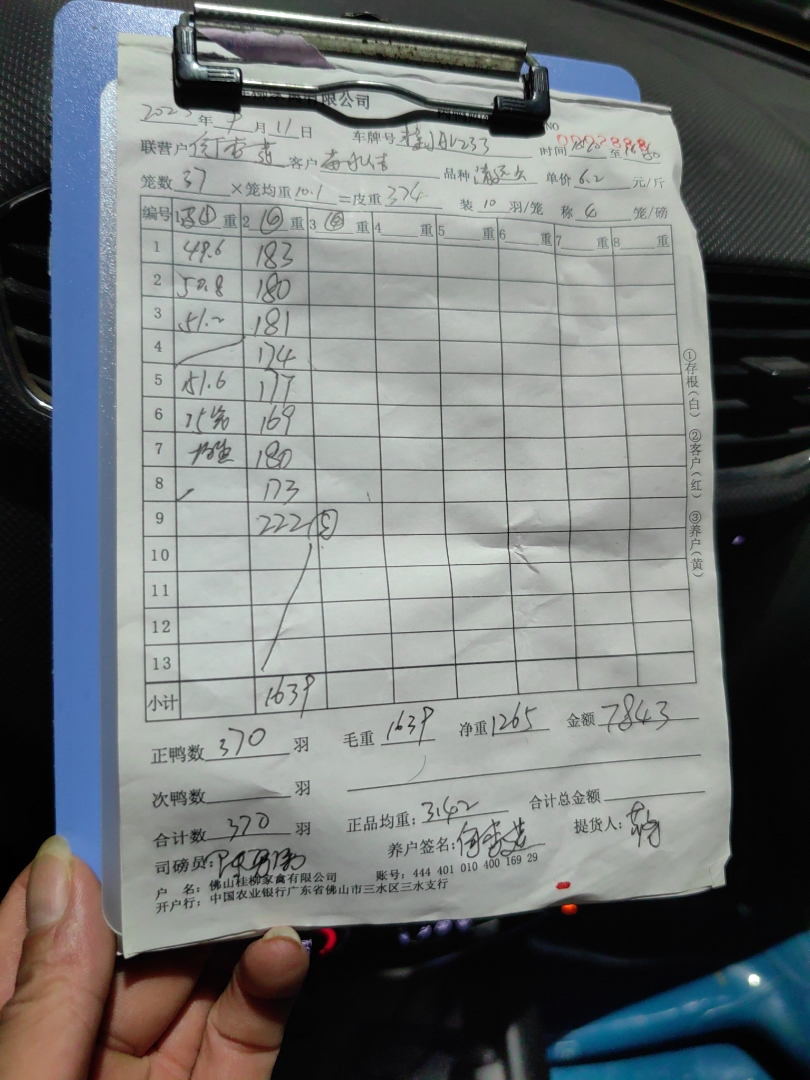 有限公司
2023年9月11日 车牌号 233 NO 0002888
联营户 客户 品种 时间 至
笼数 37 ×笼均重 10.1 =皮重 374 装 10 羽/笼 称 4 笼/磅 单价 6.2 元/斤
编号 1 重 2 重 3 重 4 重 5 重 6 重 7 重 8 重
1 49.6 183
2 50.8 180
3 51.2 181
4 174
5 51.6 177
6 169
7 180
8 173
9 222 ⑤
10
11
12
13
小计 1639
正鸭数 370 羽 毛重 1639 净重 1265 金额 7843
次鸭数 羽
合计数 370 羽 正品均重: 3.42 合计总金额
司磅员: 养户签名: 提货人:
户 名: 佛山桂柳家禽有限公司 账号: 444 401 010 400 169 29
开户行: 中国农业银行广东省佛山市三水区三水支行
①存根(白) ②客户(红) ③养户(黄)